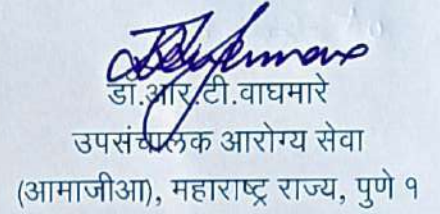 डॉ.आर.टी.वाघमारे
उपसंचालक आरोग्य सेवा
(आमाजीआ), महाराष्ट्र राज्य, पुणे १